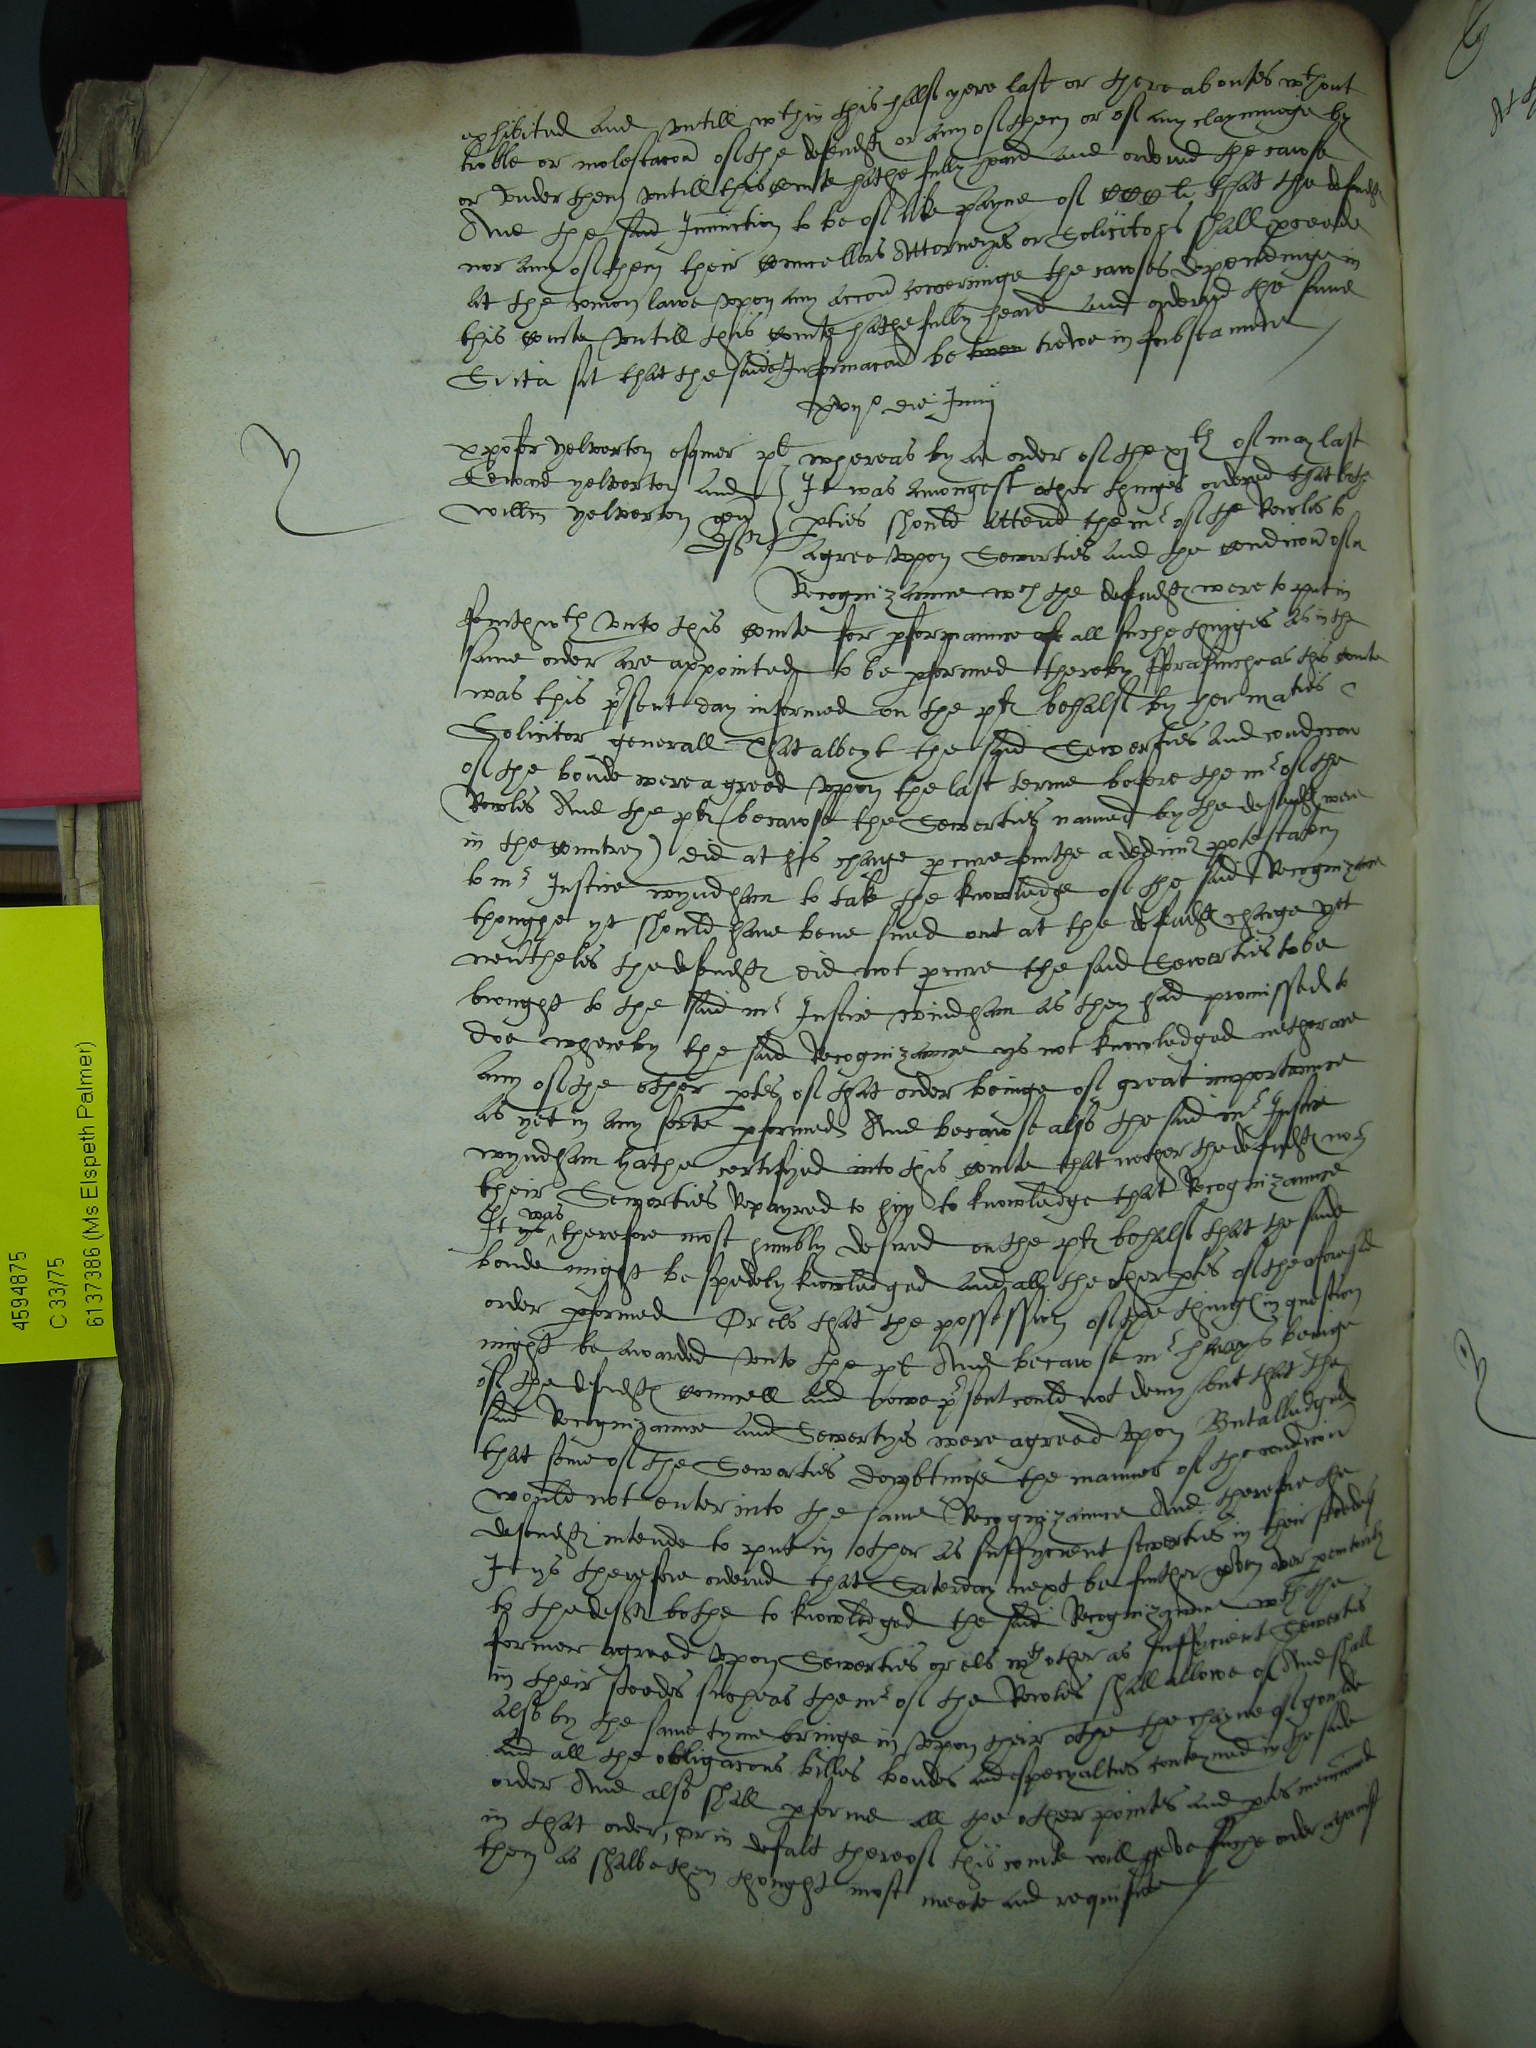 exhibited and untill wthin this halfe yere last or there aboutes wthout
troble or molestacon of the defendtes or any of them or of any clayminge by
or under them untill this courte hathe fully heard and ordered the cause
And the said Iniunction to be of like payne of ccc li. that the defendtes
nor any of them their councellors Attorneyes or Solicitors shall procede
at the comon lawe upon any accon concerninge the causes dependinge in
this courte untill this courte hathe fully heard and ordered the same
Si ita sit that the saide Informacon be trewe in substaunce
xviio die Iunij
xpofer yelverton esquier plt
Edward yelverton and
willm yelverton gen
deftes
whereas by an order of the xjth of may last
It was amongest other thinges ordered that bothe
pties should attend the mr of the Rowles to
agree upon Sewerties and the condicon of a
Recognizaunce wch the defendtes were to put in
fourthwth unto this courte for pformaunce of all suche thinges as in the
same order are appointed to be pformed thereby fforasmuche as this courte
was this psent day informed on the pltes behalfe by her maties
Solicitor generall That albeyt the said Sewerties and condicon
of the bonde were agreed uppon the last terme before the mr of the
Rowles And the plt (becawse the Sewerties named by the defendtes were
in the countrey) did at his charge pcure fourthe a dedimus potestatem
to mr Iustice wyndham to take the knowledge of the said Recognizaunce
thoughe yt should have bene sued out at the defendtes charge yet
nevtheles the defendtes did not pcure the said Sewerties to be
brought to the said mr Iustice windham as they had promissed to
doe whereby the said Recognizaunce ys not knowledged nether are
any of the other ptes of that order beinge of great importaunce
as yet in any sorte pformed And becawse also the said mr Iustice
wyndham hathe certifyed into this courte that nether the defendtes nor
their Sewerties Repayred to hym to knowledge that Recognizaunce
It ys was therefore most humbly desired on the pltes behalfe that the saide
bonde might be spedely knowledged and all the other ptes of the aforesaid
order pformed Or els that the possession of the thinges in question
might be awarded unto the plt And becawse mr beinge
of the defendtes councell and nowe psent could not deny but that the
said Recognizaunce and Sewertyes were agreed upon But alledged
that some of the Sewerties dowbtinge the manner of the condicon
would not enter into the same Recognizaunce And therefore the
defendtes intende to put in other as suffycient sewerties in their steedes
It ys therefore ordered that Saterday next be further geven over pemtorily
to the deftes bothe to knowledged the said Recognizaunce wth the
former agreed upon Sewerties or els wth other as suffycient Sewerties
in their steedes suche as the mr of the Rowles shall allowe of And shall
also by the same tyme bringe in upon their othe the chayne of goulde
and all the obligacons billes bondes and specyalties conteyned in the saide
order And also shall pforme all the other pointes and ptes mencioned
in that order, Or in defalt thereof this courte will geve suche order against
them as shalbe then thought most meete and requisite
4594875
C 33/75
6137386 (Ms Elspeth Palmer)